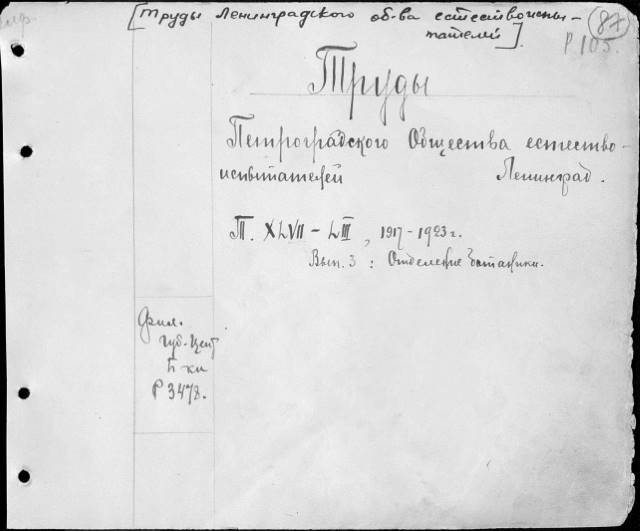 [Труды Ленинградского об-ва естествоиспы-
тателей].
87
Р 105.
Труды
Петроградского Общества естество-
испытателей Ленинград.
Т. XLVII - LIII, 1917-1923 г.
Вып. 3 : Отделение ботаники.
Фил.
Губ. Цент
Б-ки
Р 3478.